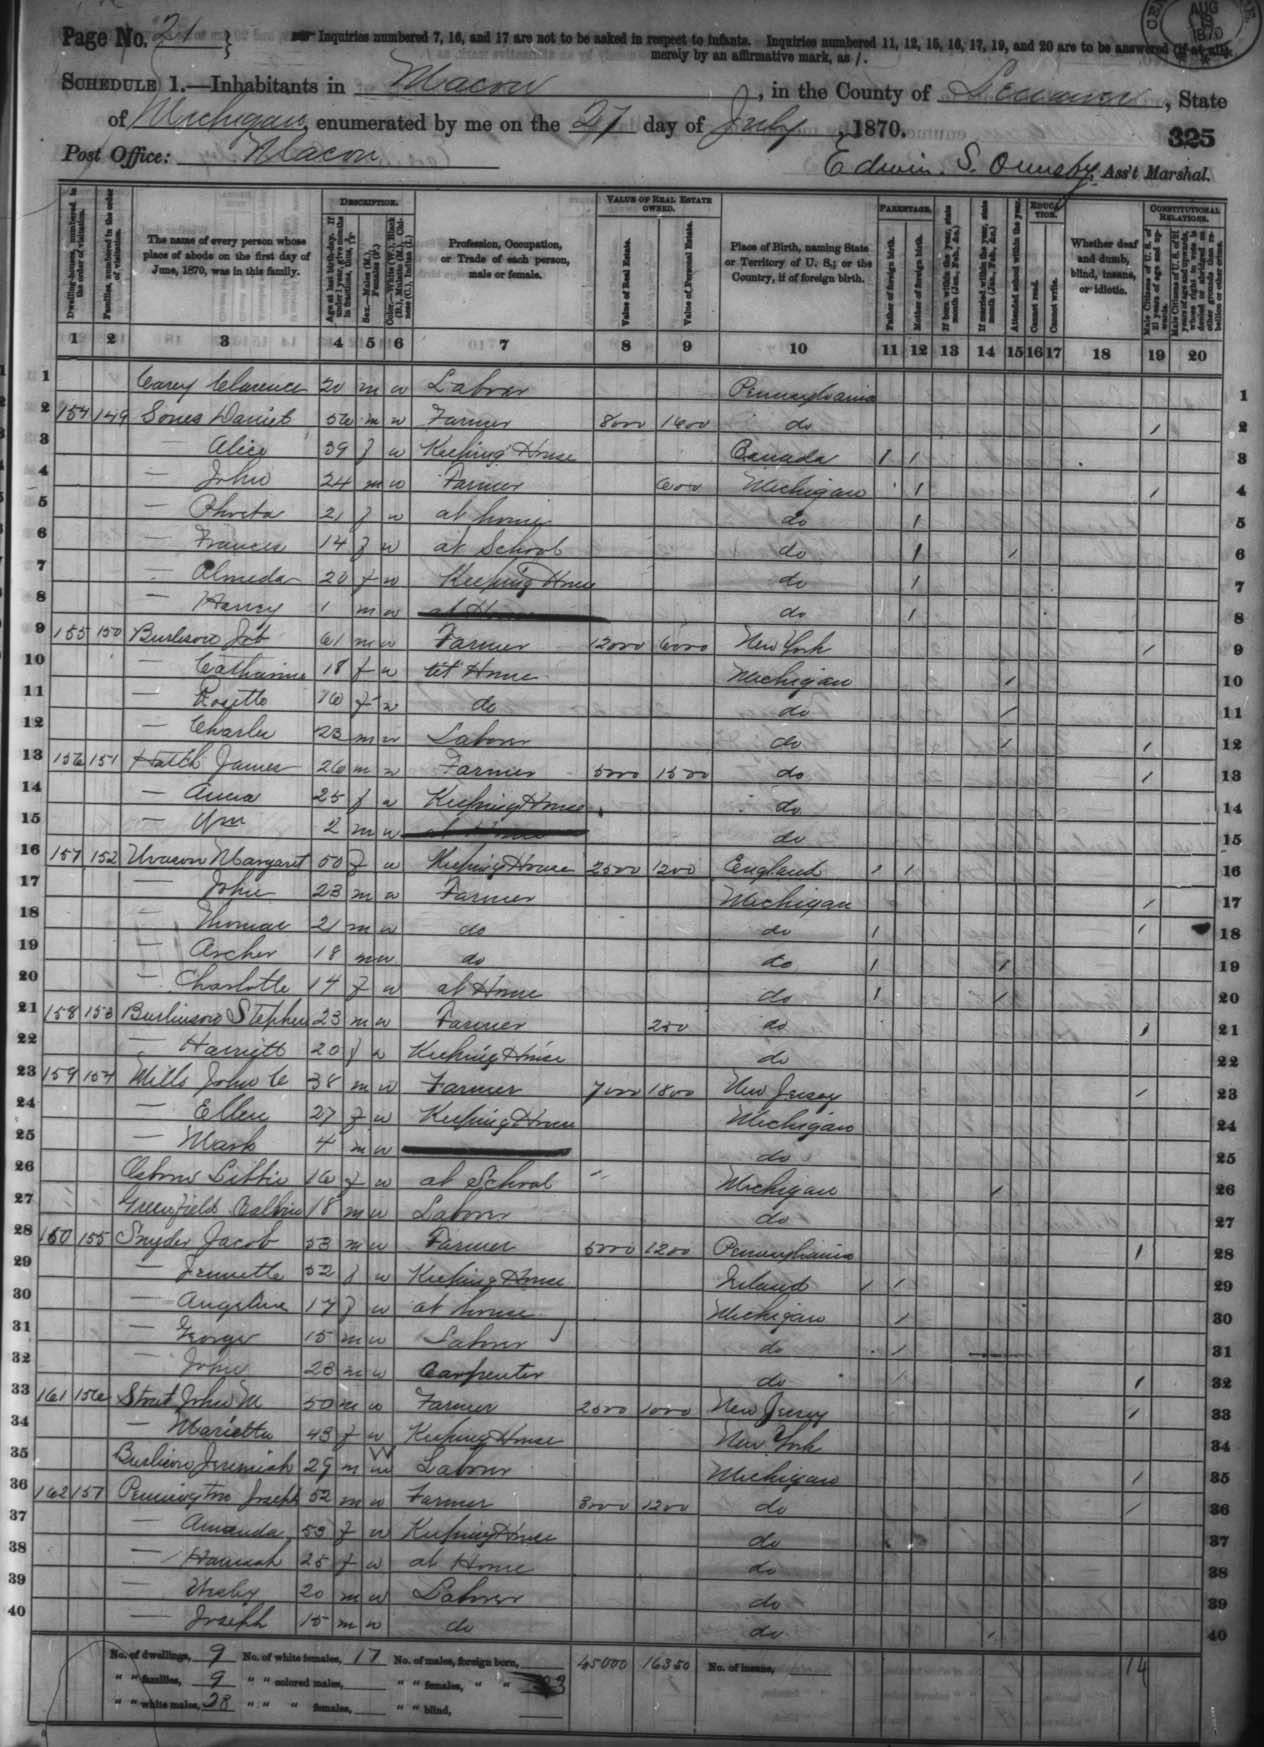 Page No. 21 } Inquiries numbered 7, 16, and 17 are not to be asked in respect to infants. Inquiries numbered 11, 12, 15, 16, 17, 19, and 20 are to be answered (if at all)
merely by an affirmative mark, as /.
AUG 1870
SCHEDULE 1.—Inhabitants in Macon, in the County of Lenawee, State
of Michigan, enumerated by me on the 27 day of July, 1870. 325
Post Office: Macon Edwin S. Ormsby, Ass't Marshal.
Dwelling-houses, numbered in the order of visitation.
Families, numbered in the order of visitation.
The name of every person whose place of abode on the first day of June, 1870, was in this family.
DESCRIPTION.
Profession, Occupation, or Trade of each person, male or female.
VALUE OF REAL ESTATE OWNED.
Value of Real Estate.
Value of Personal Estate.
Place of Birth, naming State or Territory of U. S.; or the Country, if of foreign birth.
PARENTAGE.
Father of foreign birth.
Mother of foreign birth.
If born within the year, state month (Jan., Feb., &c.)
If married within the year, state month (Jan., Feb., &c.)
Attended school within the year.
EDUCATION.
Cannot read.
Cannot write.
Whether deaf and dumb, blind, insane, or idiotic.
CONSTITUTIONAL RELATIONS.
1 2 3 4 5 6 7 8 9 10 11 12 13 14 15 16 17 18 19 20
1 Carey Clarence 20 m w Laborer Pennsylvania 1
2 154 149 Sones Daniel 56 m w Farmer 8000 1600 do / 2
3 — Alice 39 f w Keeping House Canada / / 3
4 — John 24 m w Farmer 600 Michigan / / 4
5 — 21 f w at home do / 5
6 — Frances 14 f w at School do / / 6
7 — Almeda 20 f w Keeping House do / 7
8 — Harvey 1 m w at Home do / 8
9 155 150 Burleson Job 61 m w Farmer 12000 6000 New York / 9
10 — Catharine 18 f w at Home Michigan / 10
11 — Rosetta 16 f w do do / 11
12 — Charles 23 m w Laborer do / / 12
13 156 151 Hatch James 26 m w Farmer 5000 1500 do / 13
14 — Anna 25 f w Keeping House do 14
15 — Wm 2 m w at Home do 15
16 157 152 Margaret 50 f w Keeping House 2500 1200 England / / 16
17 — John 23 m w Farmer Michigan / 17
18 — Thomas 21 m w do do / / 18
19 — Archer 18 m w do do / / 19
20 — Charlotte 14 f w at Home do / / 20
21 158 153 Burleson Stephen 23 m w Farmer 250 do / 21
22 — Harriett 20 f w Keeping House do 22
23 159 154 Mills John C 38 m w Farmer 7000 1800 New Jersey / 23
24 — Ellen 27 f w Keeping House Michigan 24
25 — Mark 4 m w do 25
26 Osborn Libbie 16 f w at School Michigan / 26
27 Greenfield Calvin 18 m w Laborer do 27
28 160 155 Snyder Jacob 53 m w Farmer 5000 1200 Pennsylvania / 28
29 — Jennette 52 f w Keeping House Ireland / / 29
30 — Angeline 17 f w at house Michigan / 30
31 — George 15 m w Laborer do / 31
32 — John 23 m w Carpenter do / 32
33 161 156 Strait John M 50 m w Farmer 2500 1000 New Jersey / 33
34 — Marietta 43 f w Keeping House New York 34
35 Burleson Jeremiah 29 m w Laborer Michigan / 35
36 162 157 Pennington Joseph 52 m w Farmer 3000 1200 do / 36
37 — Amanda 53 f w Keeping House do 37
38 — Hannah 25 f w at Home do 38
39 — 20 m w Laborer do 39
40 — Joseph 15 m w do do / 40
No. of dwellings, 9 No. of white females, 17 No. of males, foreign born, 45000 16350 No. of insane, 14
" " families, 9 " " colored males, " " females, " "
" " white males, 23 " " " females, " " blind,